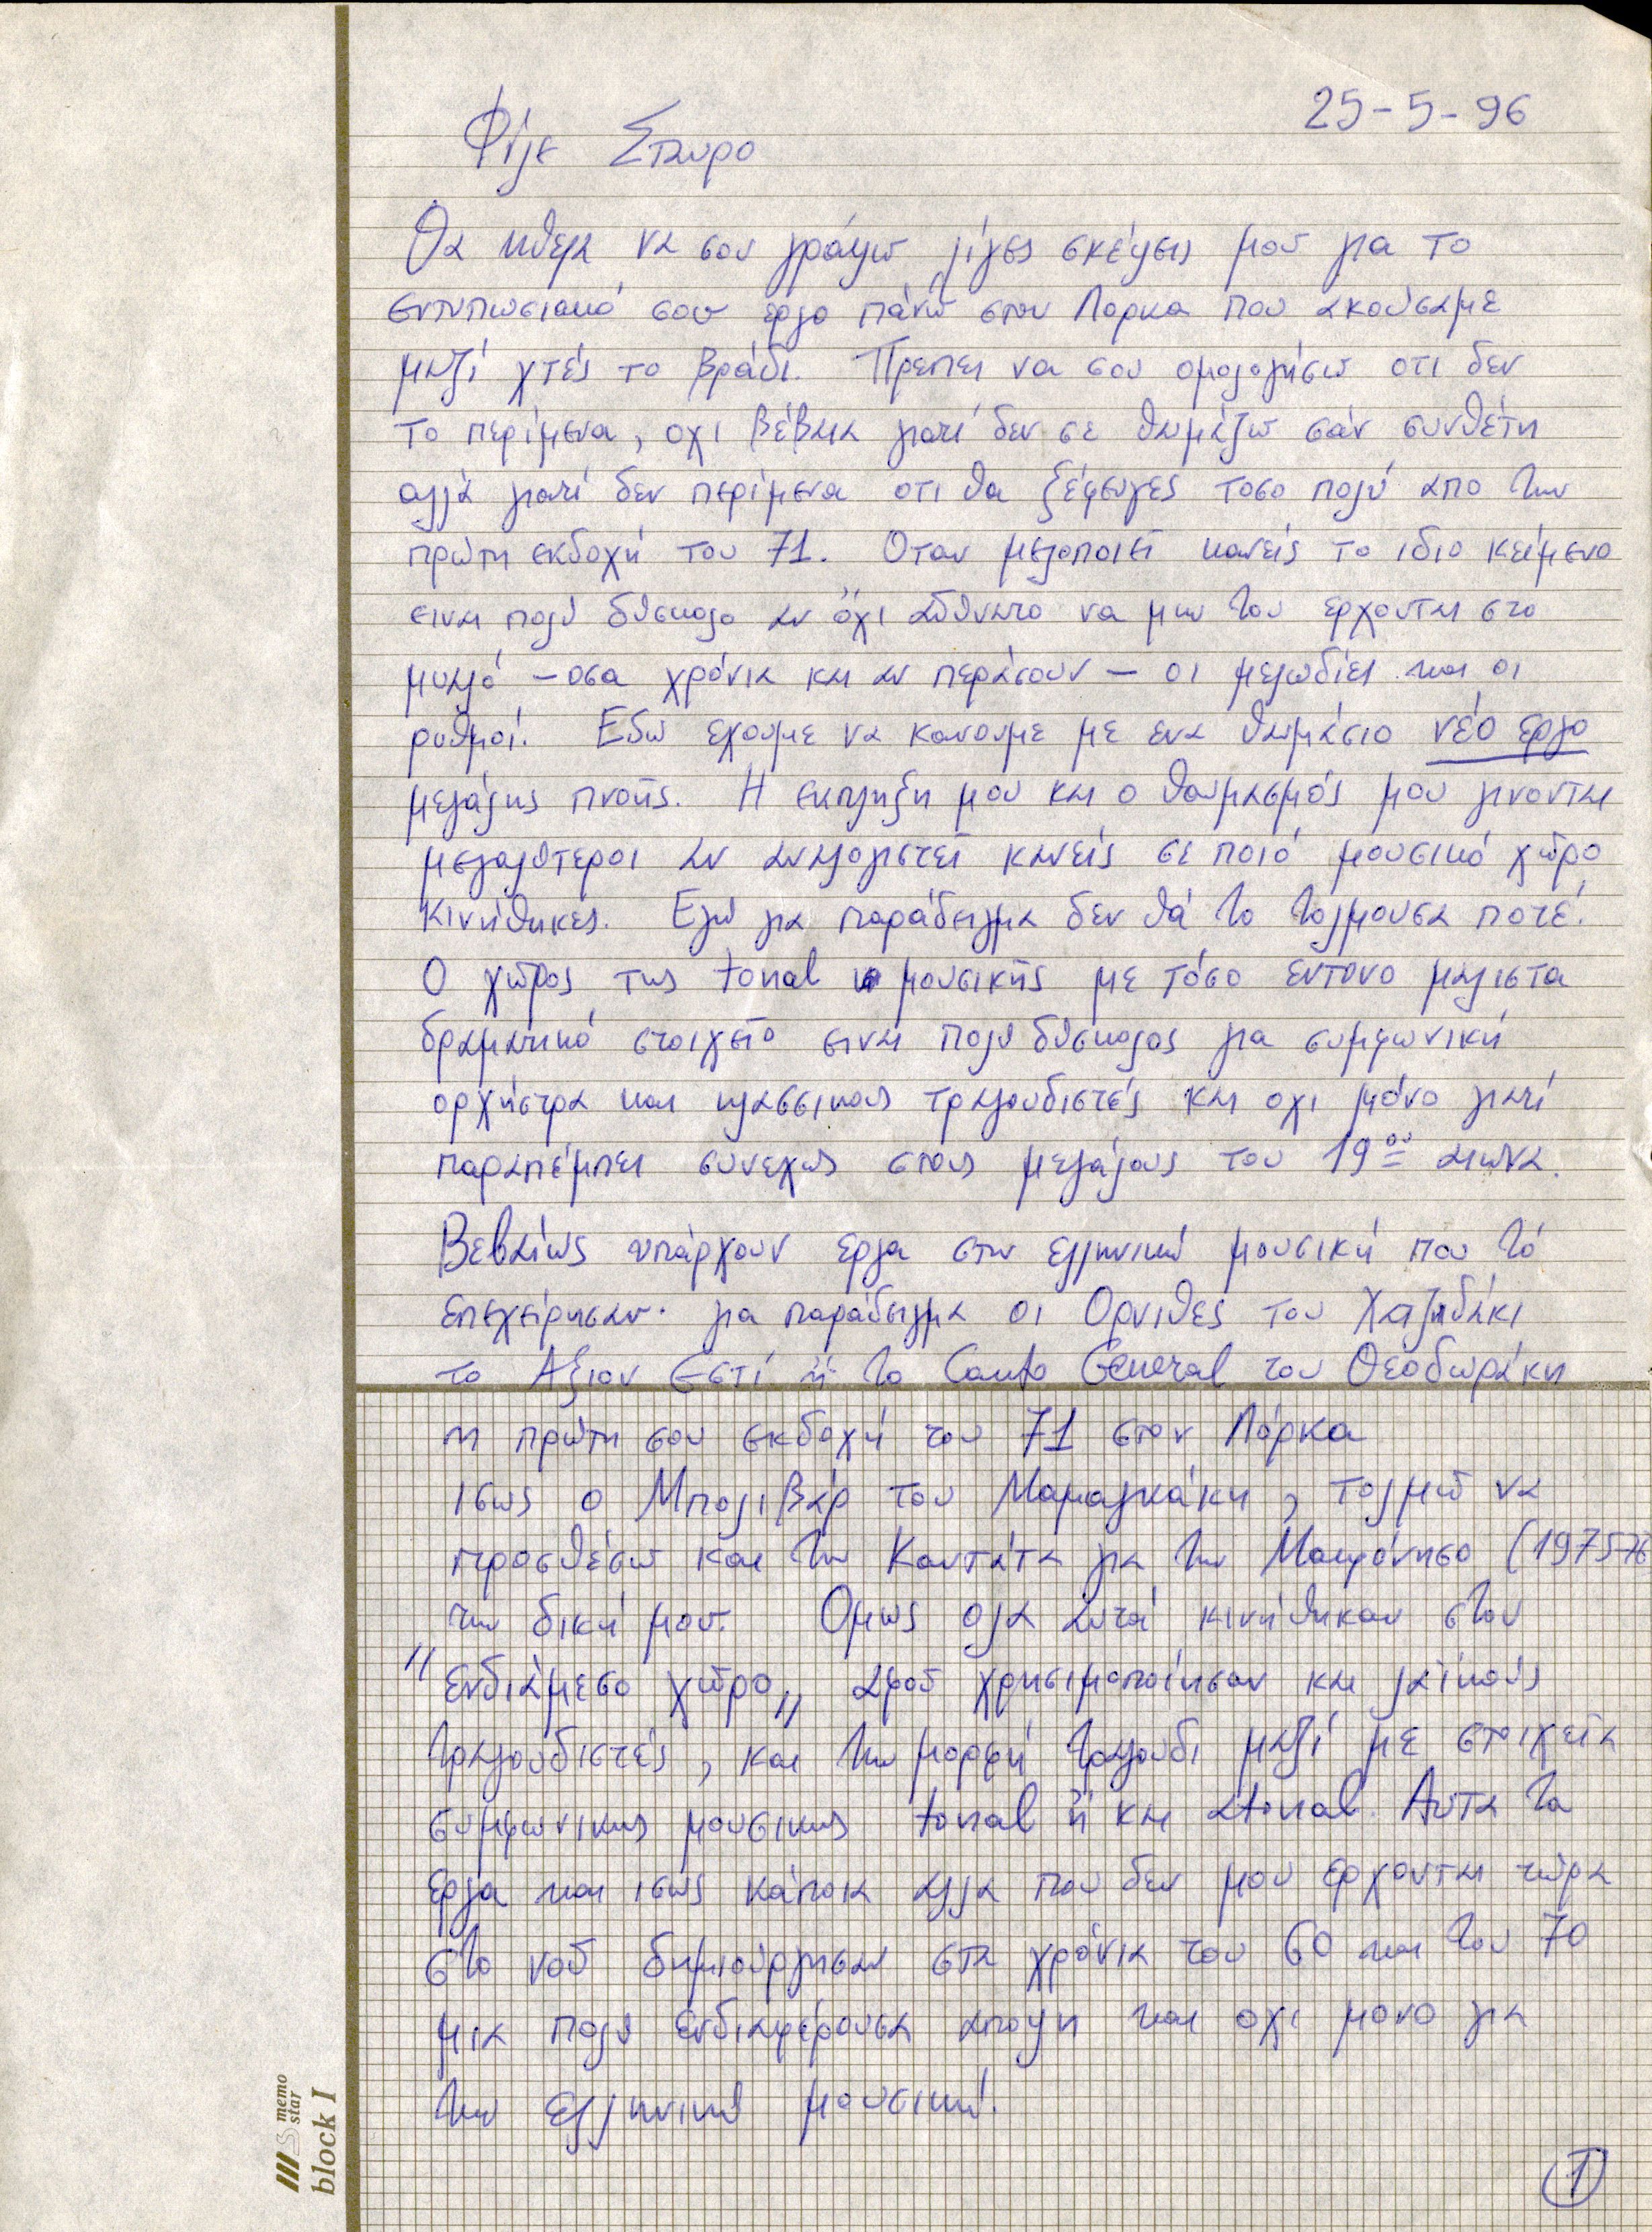 25-5-96
Φίλε Σταυρο
Θα ηθελα να σου γράψω λίγες σκέψεις μου για το
εντυπωσιακό σου εργο πάνω στον Λορκα που ακούσαμε
μαζί χτές το βράδι. Πρεπει να σου ομολογήσω οτι δεν
το περίμενα, οχι βέβαια γιατί δεν σε θαυμάζω σάν συνθέτη
αλλά γιατί δεν περίμενα οτι θα ξέφευγες τοσο πολύ απο την
πρώτη εκδοχή του 71. Οταν μελοποιεί κανείς το ιδιο κείμενο
ειναι πολύ δύσκολο αν όχι αδύνατο να μην του ερχονται στο
μυαλό - οσα χρόνια και αν περάσουν - οι μελωδίες και οι
ρυθμοί. Εδώ εχουμε να κανουμε με ενα θαυμάσιο νέο εργο
μεγάλης πνοής. Η εκπληξη μου και ο θαυμασμός μου γινονται
μεγαλύτεροι αν αναλογιστεί κανείς σε ποιό μουσικό χώρο
κινήθηκες. Εγώ για παράδειγμα δεν θά το τολμουσα ποτέ.
Ο χώρος της tonal μουσικής με τόσο εντονο μαλιστα
δραματικό στοιχείο ειναι πολύ δύσκολος για συμφωνική
ορχήστρα και κλασσικους τραγουδιστές και οχι μόνο γιατί
παραπέμπει συνεχως στους μεγάλους του 19ου αιωνα.
Βεβαίως υπάρχουν εργα στην ελληνική μουσική που τό
επεχείρησαν. για παράδειγμα οι Ορνιθες του Χατζηδάκι
το Αξιον Εστί ή το Canto General του Θεοδωράκη
η πρώτη σου εκδοχή του 71 στον Λόρκα
ισως ο Μπολιβάρ του Μαμαγκάκη, τολμώ να
προσθέσω και την Καντάτα για την Μακρόνησο (1975-76
την δική μου. Ομως ολα αυτά κινήθηκαν στον
"ενδιάμεσο χώρο" αφού χρησιμοποίησαν και λαϊκούς
τραγουδιστές, και την μορφή τραγουδι μαζί με στοιχεία
συμφωνικης μουσικης tonal ή και atonal. Αυτα τα
εργα και ισως κάποια αλλα που δεν μου ερχονται τώρα
στο νού δημιούργησαν στα χρόνια του 60 και του 70
μια πολύ ενδιαφέρουσα αποψη και οχι μονο για
την ελληνική μουσική.
1
memo
star
block I